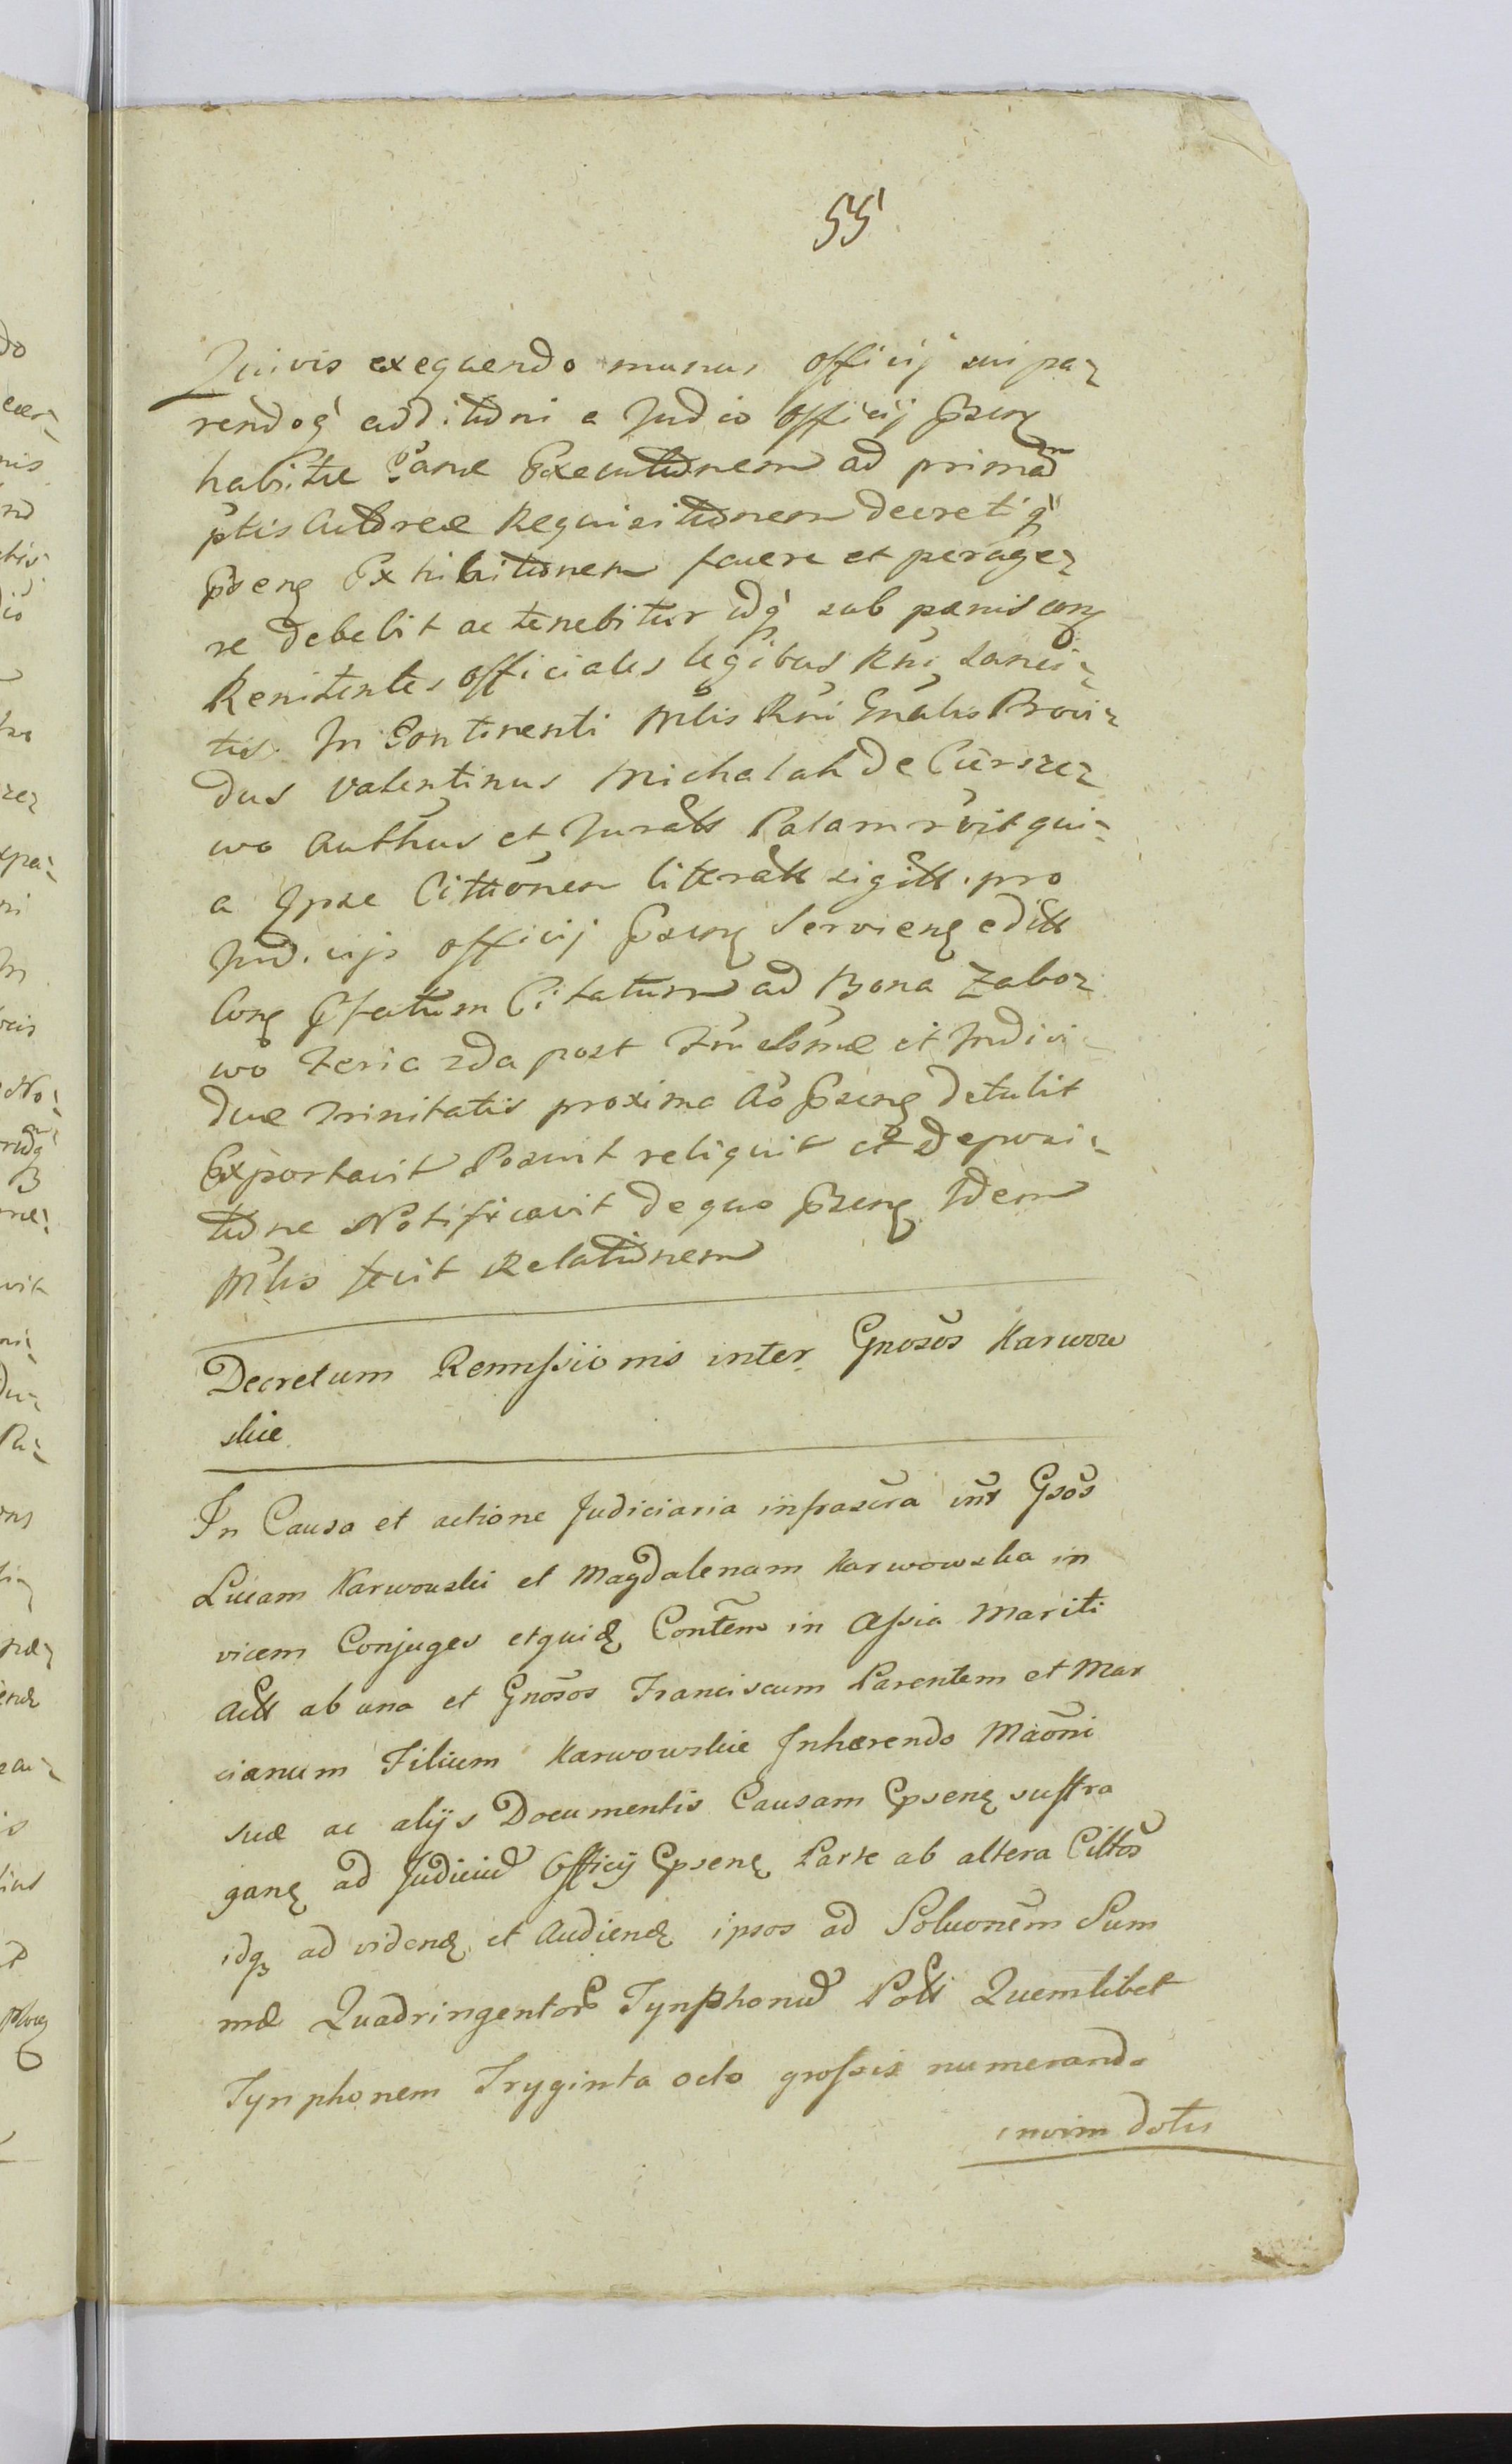 55
Quivis exequendo munus officij sui pa-
rendoq addittioni a Judcio officij Pnsung
habitæ Canæ Executionem ad primam
ptis Actoreæ Requisitionem decretiq
Pnseng Exhibitionem facere et perage-
re debebit ac tenebitur idq sub pænis cong
Renitentes officiales legibus Rni sanci-
tis. In Continenti Mlis Rni Gnalis Provi-
dus Valentinus Michalak de Curzze-
wo Authus et Juratt Palam rvit qui-
a Ipse Cittionem litteratt sigitt. pro
Judicijs officij Pnsung Servieng editt
Cong Pfatum Citatum ad Bona Zabo-
wo Feria 2da post Fm Ssmæ et Indivi-
duæ Trinitatis proxima Ao Pnseng detulit
Exportavit Posuit reliquit et Deposi-
tione Notificavit de quo Pnseng Idem
Mlis fecit Relationem
Decretum Remissiionis inter Gnosos Karwow
skie
In Causa et actione Judiciaria infrascra intr Gsos
Lucam Karwowski et Magdalenam Karwowska in
vicem Conjuges et quidę Contem in Assia Mariti
Actt ab una et Gnosos Franciscum Parentem et Mar
cianum Filium Karwowskie Inhærendo Maoni
suæ ac alijs Documentis Causam Cpsenę suffra
ganę ad Judiciu Officij Cpsenę Parte ab altera Cittos
idq ad videnę et Audienę ipsos ad Soluonem Sum
mæ Quadringentor Tynphonu Poltt Quemlibet
Tynphonem Tryginta octo grossis numerando
in vim dotis